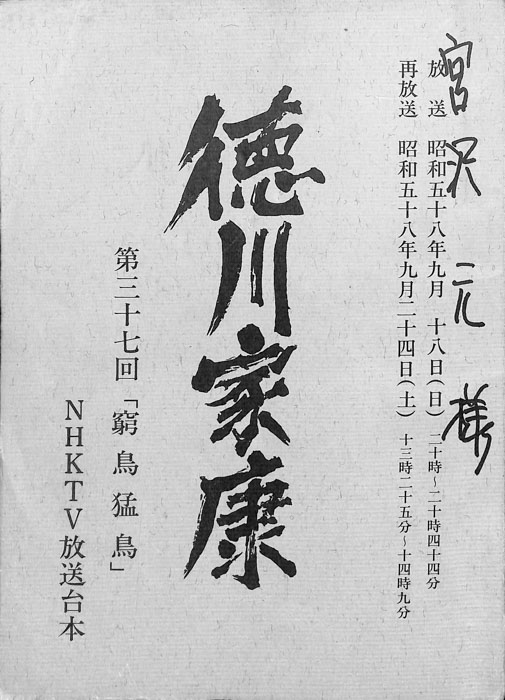 宮沢元様
放送 昭和五十八年九月 十八日(日) 二十時~二十時四十四分
再放送 昭和五十八年九月二十四日(土) 十三時二十五分~十四時九分
徳川家康
第三十七回「窮鳥猛鳥」
NHKTV放送台本